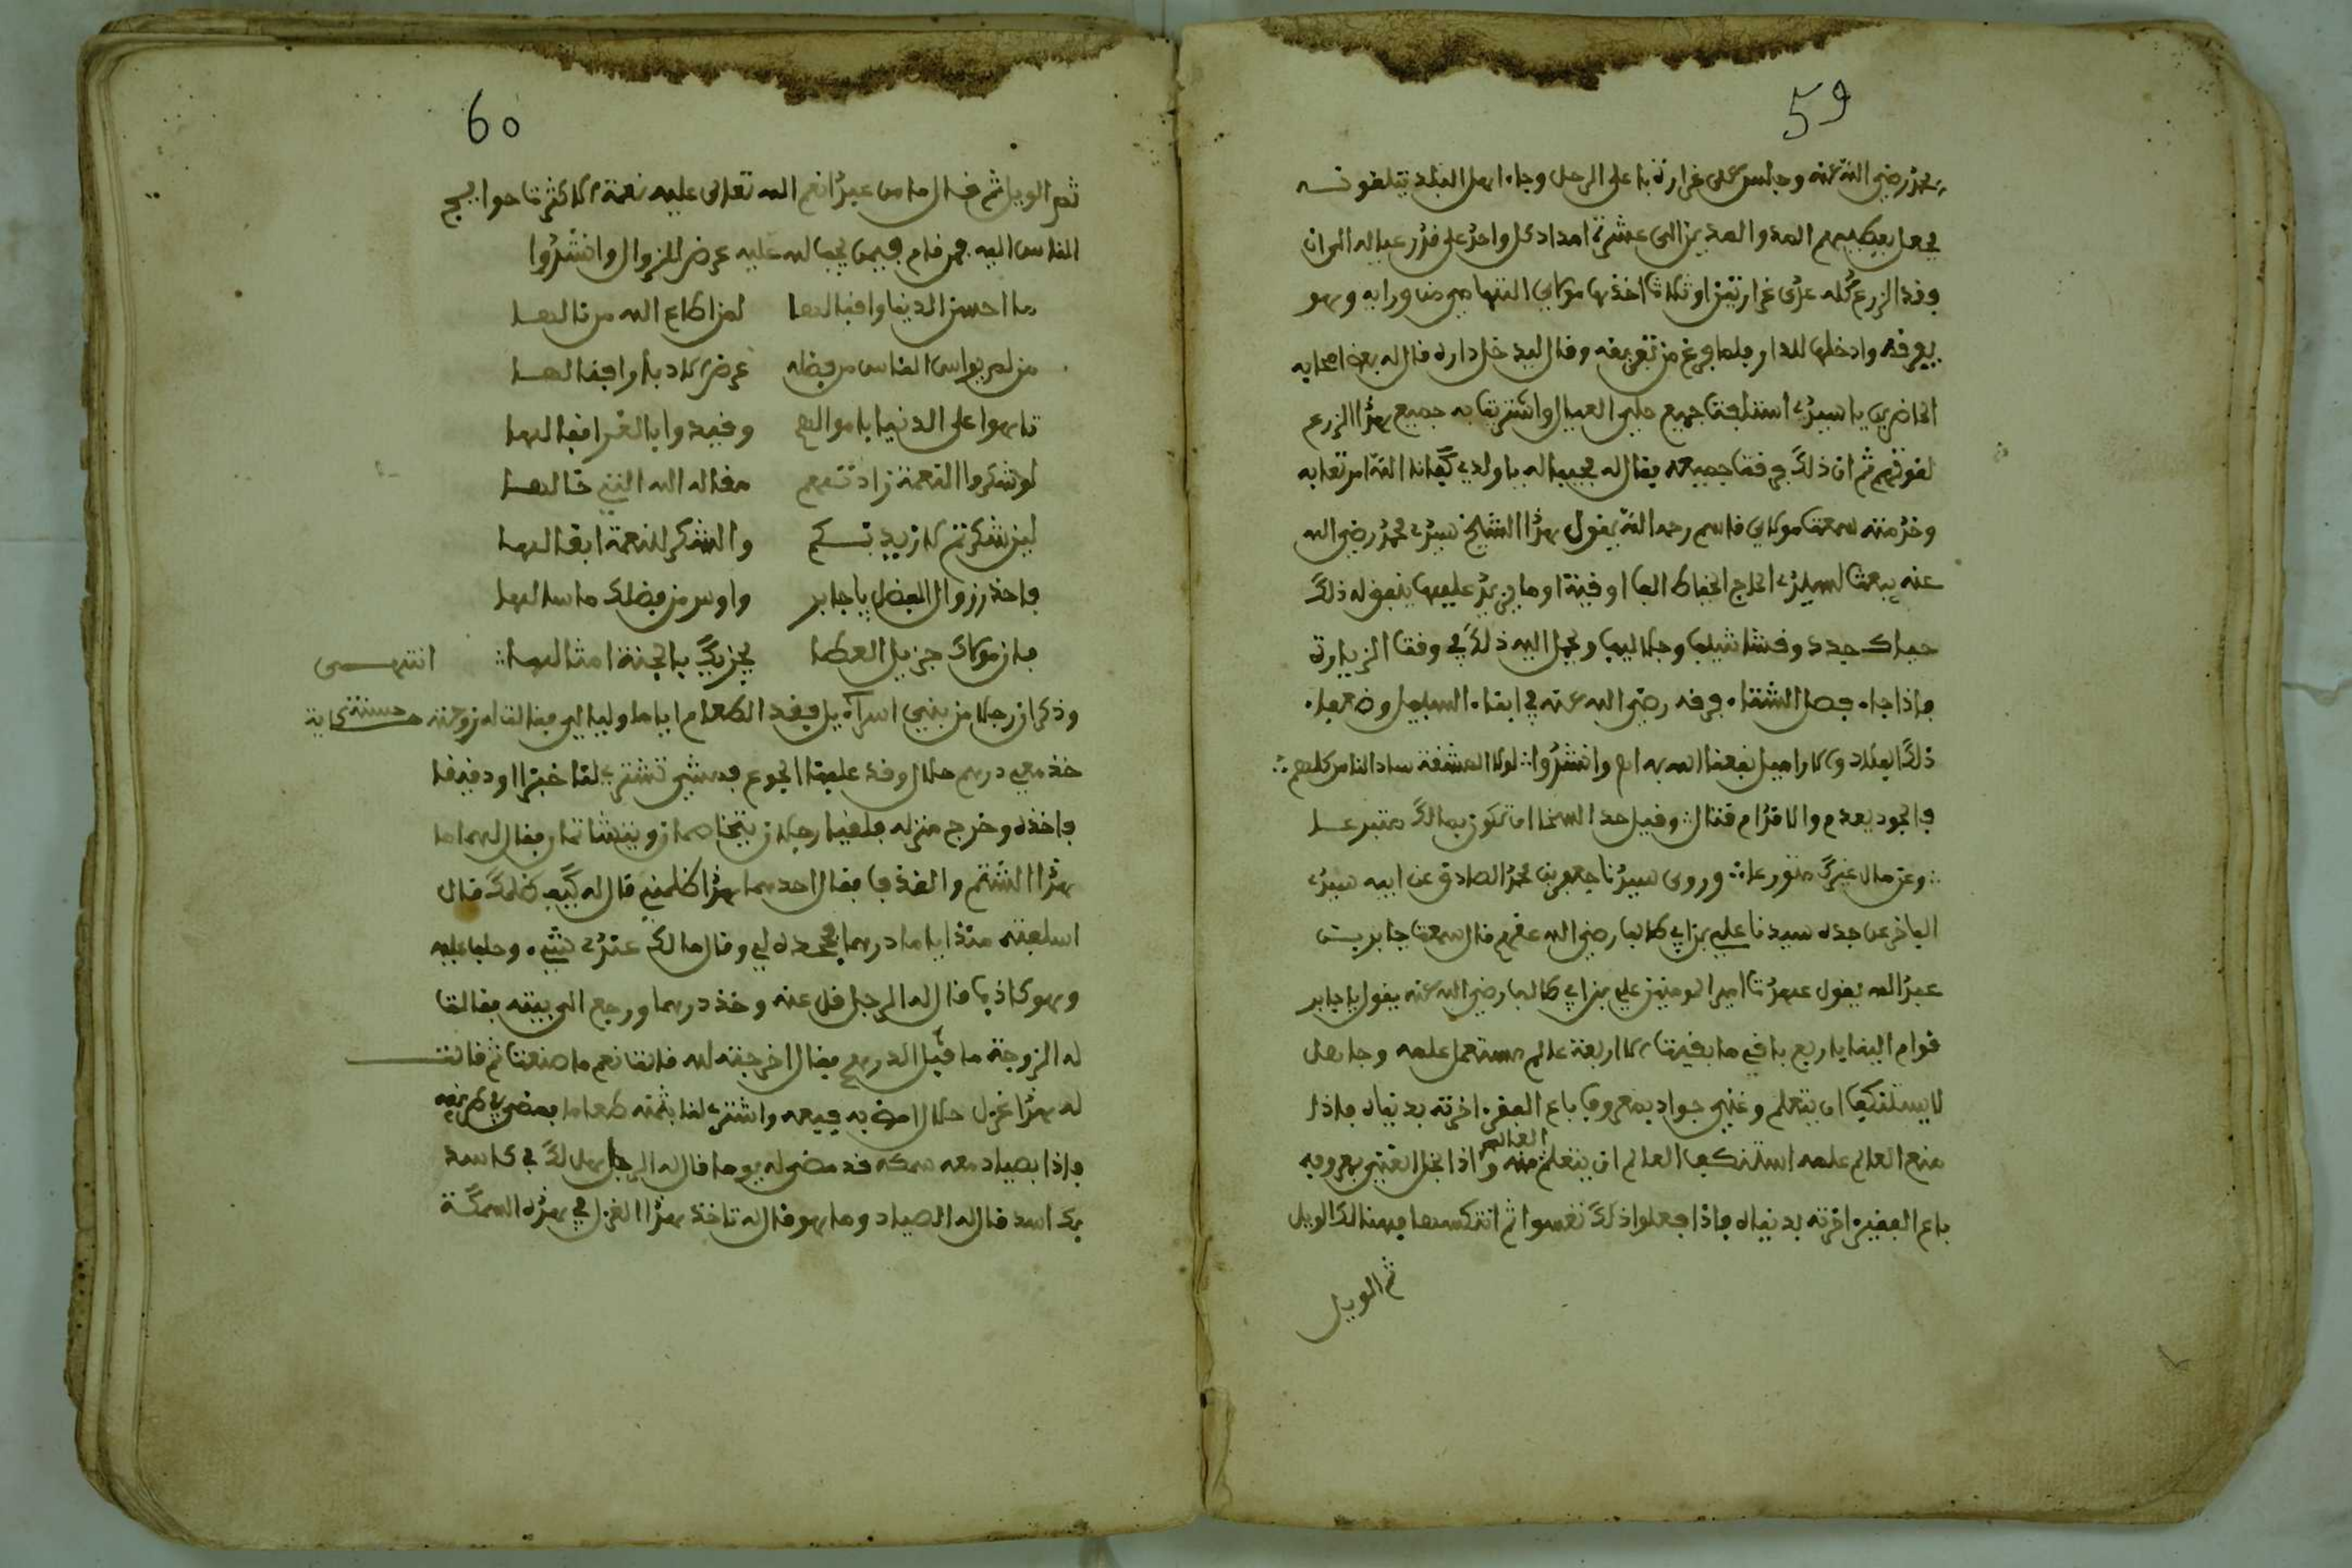 59
محمد رضي الله عنه وجلس على غرارة باعلى الرحل وجاء اهل البلد يتلقونه
فجعل يعطيهم المد والمدين الى عشرة امداد كل واحد على قدر عياله الى ان
وفد الزرع كله عدى غرارتين او ثلاثا اخذها مولاي التهامي من ورايه وهو
يفرقه وادخلها للدار فلما فرغ من تفريقه وقال ليدخل داره قال له بعض اصحابه
الحاضرين يا سيدي استلفت جميع حلي العيال واشتريت به جميع هذا الزرع
لقوتهم ثم ان ذلك فرقت جميعه فقال له مجيبا له يا ولدي كفانا الله امر تعابه
وخدمته سمعت مولاي قاسم رحمه الله يقول هذا الشيخ سيدي محمد رضي الله
عنه يبعث لسيدي الحاج الخياط الف اوقية او ما يزيد عليها ينفق له ذلك
حياك جدد وقشاشب وجلاليب ونحمل اليه ذلك في وقت الزيارة
فاذا جاء فصل الشتاء فرقه رضي الله عنه في ابناء السبيل وضعفاء
ذلك البلاد والاراميل نفعنا الله به امـ وانشدوا ∴ لولا المشقة ساد الناس كلهم ∴
فالجود يعدم والاقدام قتال ∴ وقيل حد السخا ان تكون بمالك متبرعا
∴ وعن مال غيرك متورعا ∴ وروى سيدنا جعفر بن محمد الصادق عن ابيه سيدي
الباقر عن جده سيدنا علي بن ابي طالب رضي الله عنهم قال سمعت جابر بن
عبد الله يقول عهدت امير المومنين علي بن ابي طالب رضي الله عنه يقول يا جابر
قوام الدنيا باربع باقي ما بقيت الا اربعة عالم مستعمل علمه وجاهل
لا يستنكف ان يتعلم وغني جواد بمعروف باع الفقير اخرته بدنياه فاذا
منع العالم علمه استنكف العالم ان يتعلم العالم منه واذا بخل الغني بمعروفه
باع الفقير اخرته بدنياه فاذا فعلوا ذلك تعسوا ثم انتكسوا فهنالك الويل
ثم الويل
60
ثم الويل ثم قال ما من عبد انعم الله تعالى عليه نعمة الا كثرت حوايج
الناس اليه فمن قام فيها بحب الله عليه عرض للزوال وانشدوا
ما احسن الدنيا واقبالها لمن اطاع الله من نالها
من لم يواس الناس من فضله عرض للادبار اقبالها
تاهوا على الدنيا باموالهم وقيدوا بالغر اقفالها
لو شكروا النعمة زادتهم مقاله الله التي قالها
لين شكرتم لازيدنكم والشكر للنعمة ابقا لها
فاحذر زوال الفضل يا جابر واوس من فضلك ما سالها
فان مولاك جزيل العطا يجزيك بالجنة امثالها ∴ انتهى
وذكر ان رجلا من بني اسراءيل فقد الطعام اياما وليالي فقالت له زوجته حسنة حكاية
خذ معي درهم حلال وقد علينا الجوع فامش تشتري لنا خبزا او دقيقا
فاخذه وخرج منزله فلقيا رجلان يتخاصمان ويتشاتمان فقال لهما ما
هذا الشتم والقذف فقال احدهما هذا ظلمني قال له كيف ظلمك قال
اسلفته منذ ايام درهما فجحده لي وقال ما لك عندي شيء وحلف عليه
وهو كاذب قال له الرجل قل عنه وخذ درهما ورجع الى بيته فقالت
له الزوجة ما فعل الدرهم فقال اخرجته لله قالت نعم ما صنعت ثم قالت
له هذا غزل حلال امض به فبيعه واشتر لنا بثمنه طعاما فمضى في طريقه
فاذا بصياد معه سمكة قد مضى له يوما قال له الرجل هل لك في كاسد
بكاسد قال له الصياد وما هو قال له تاخذ هذا الغزل في هذه السمكة